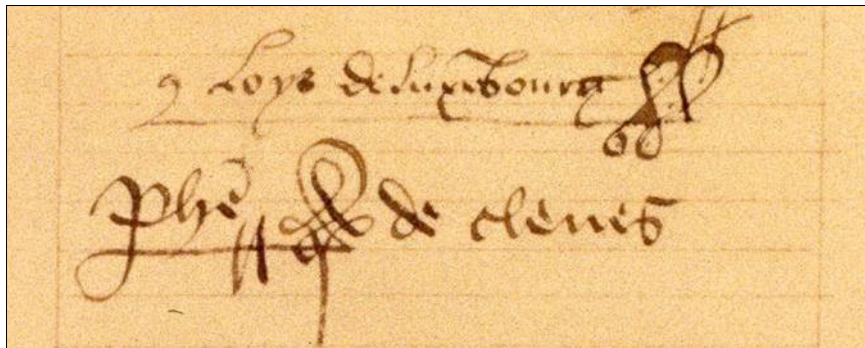 Loys de Luxẽbourg
Phẽ de cleues